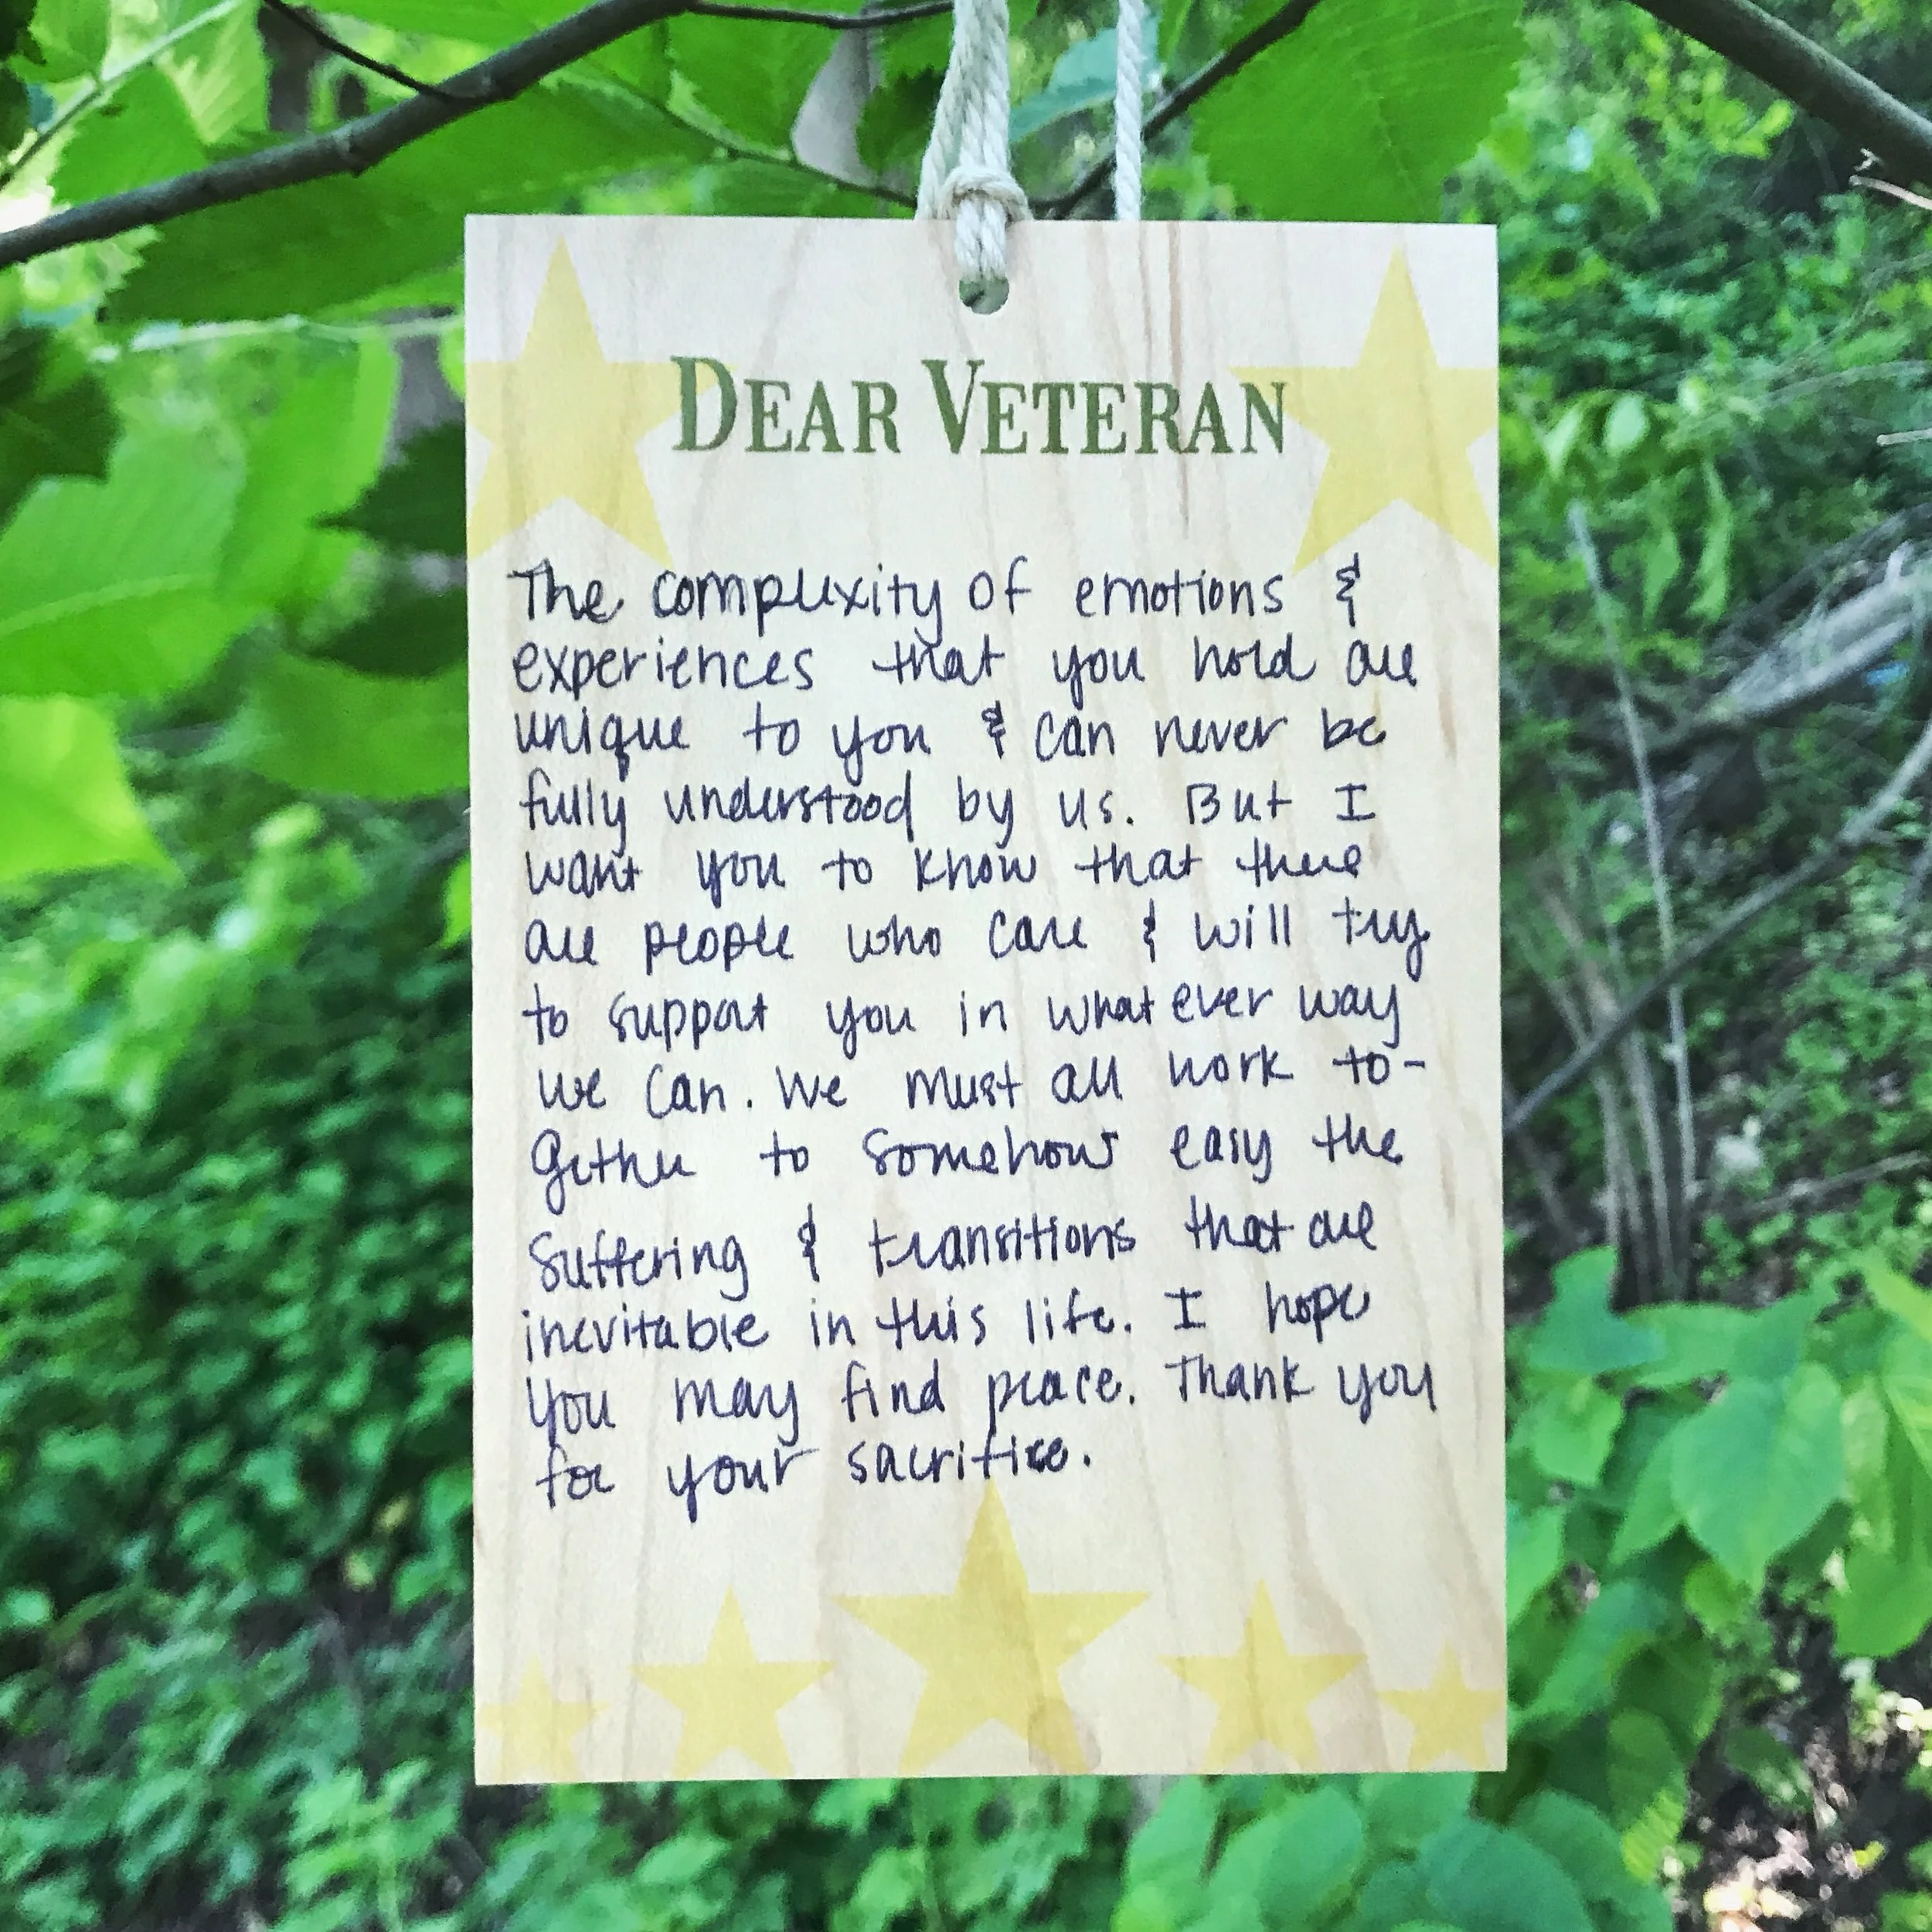 DEAR VETERAN
The complexity of emotions &
experiences that you hold are
unique to you & can never be
fully understood by us. But I
want you to know that there
are people who care & will try
to support you in whatever way
we can. We must all work to-
gether to somehow easy the
suffering & transitions that are
inevitable in this life. I hope
you may find peace. Thank you
for your sacrifice.